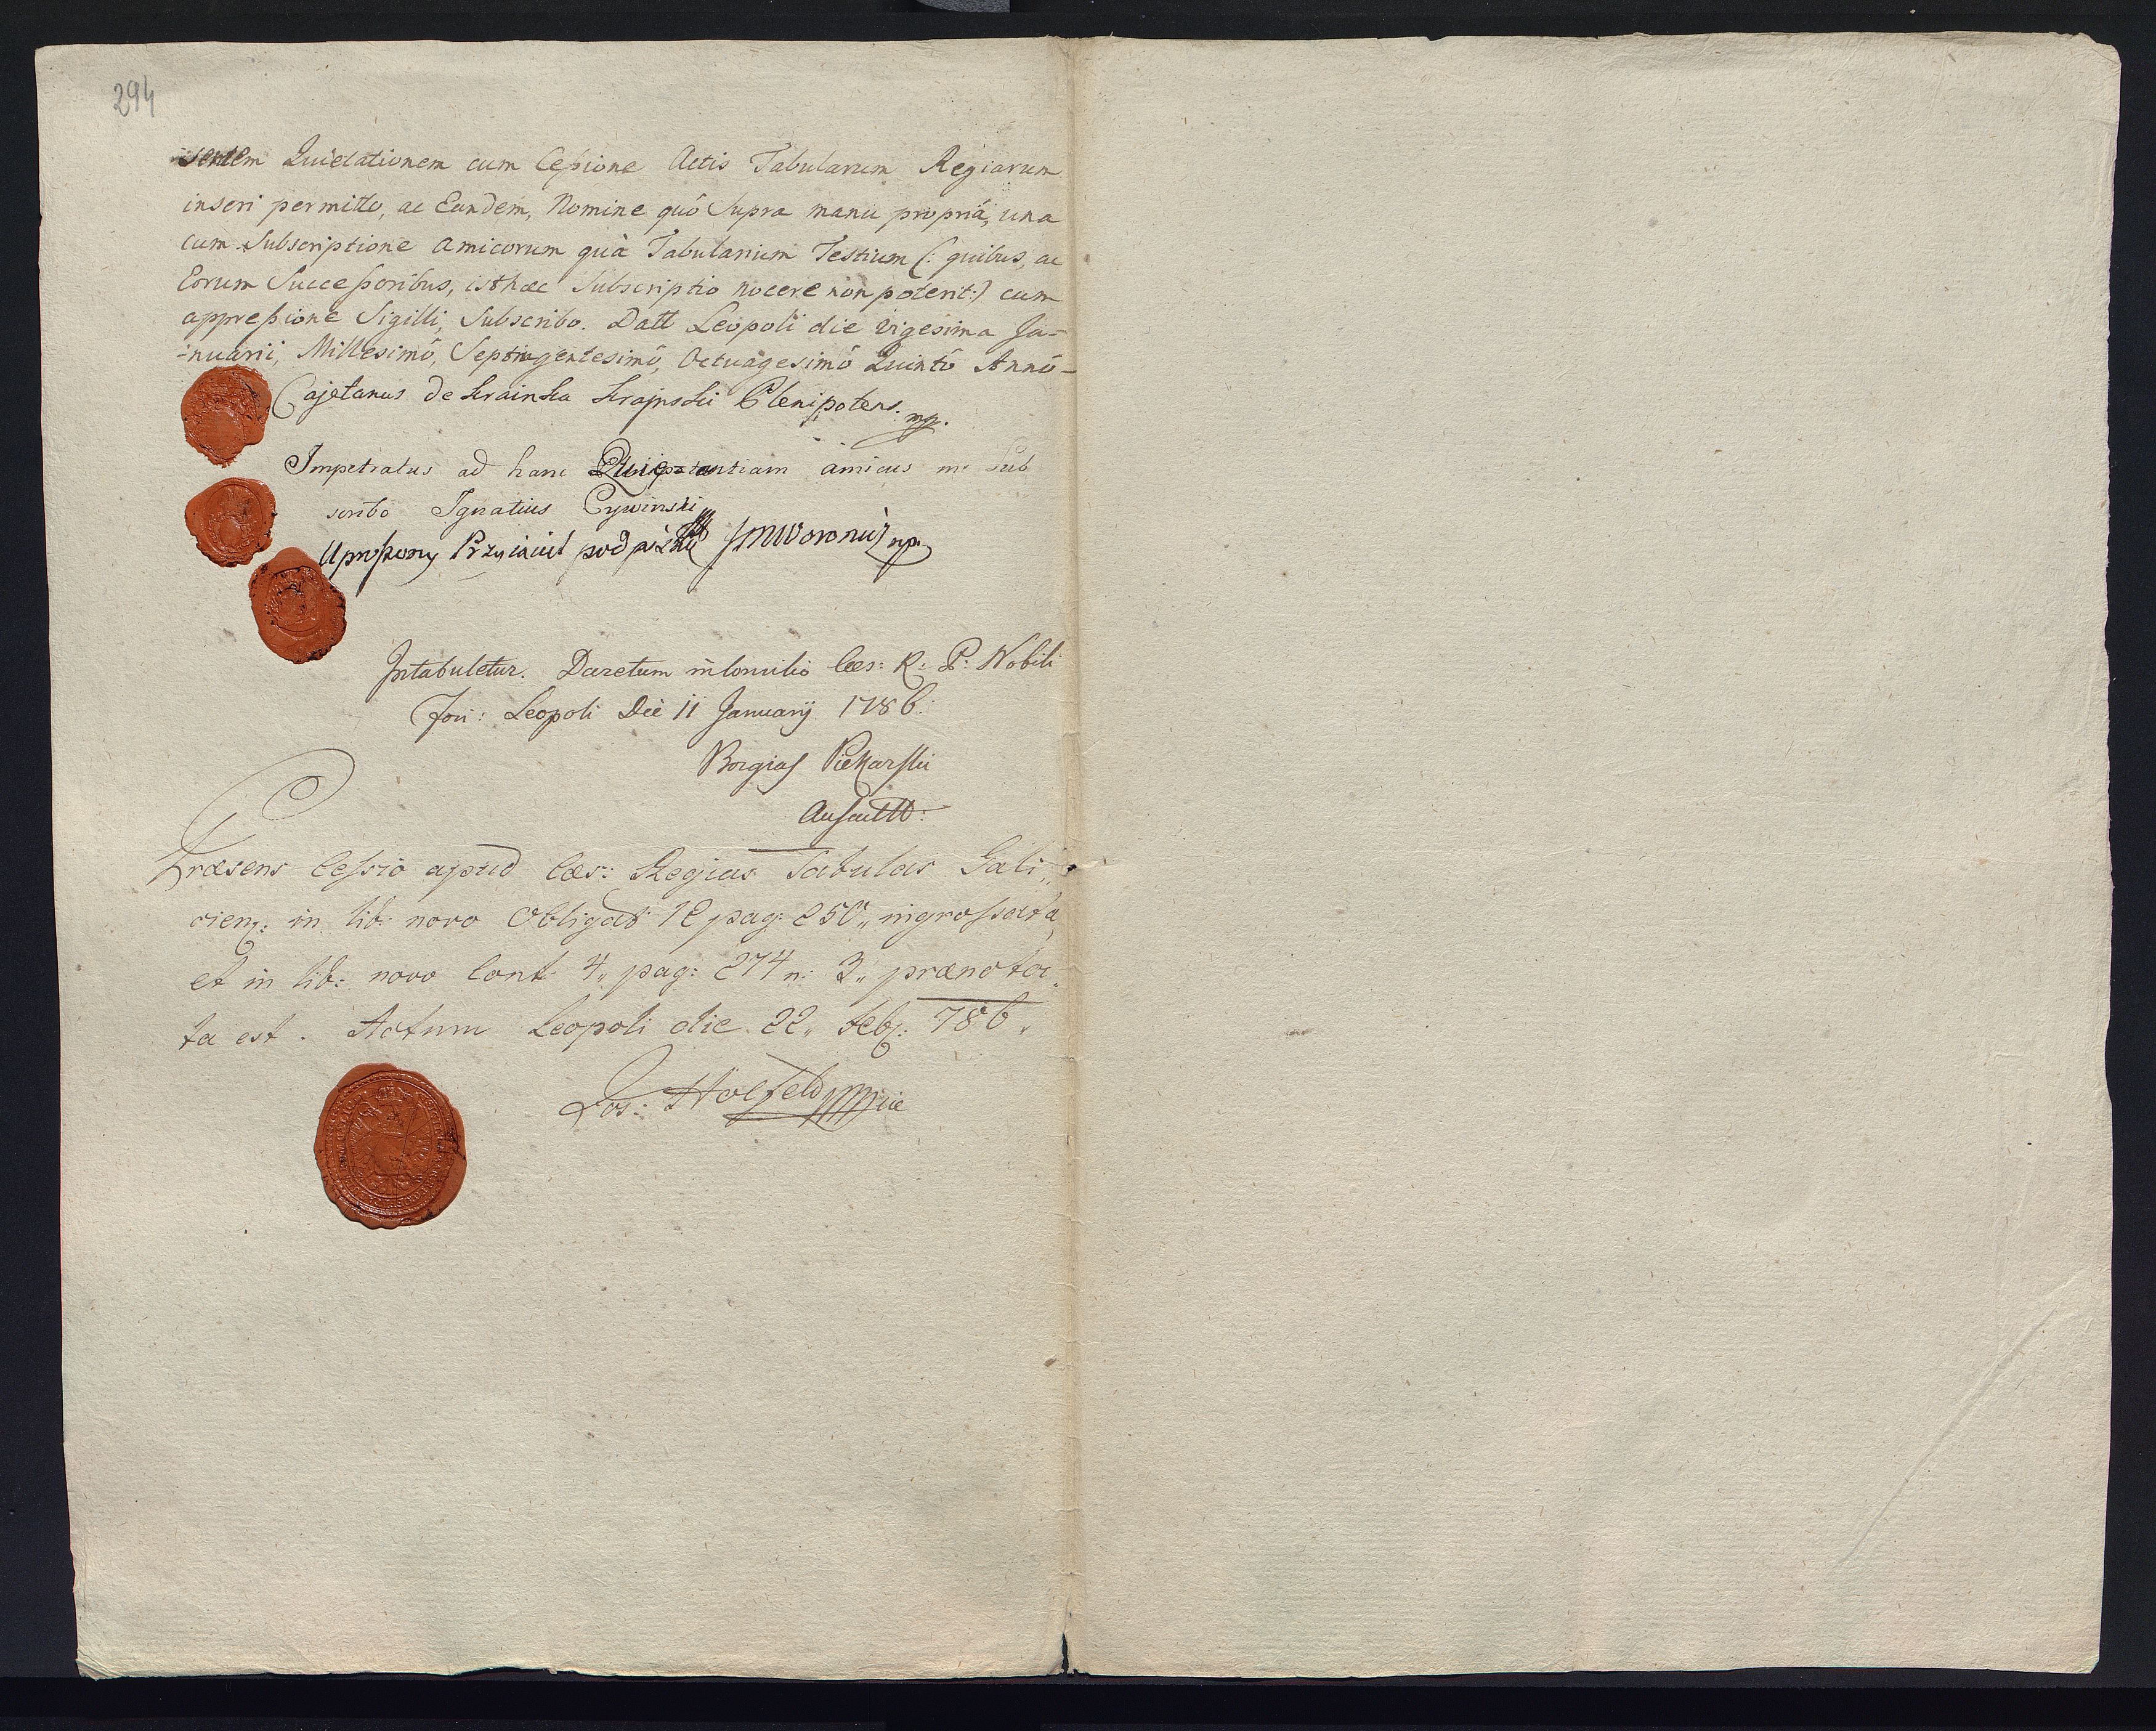 294
sentem Quietationem cum Cessione Actis Tabularum Regiarum
inseri permitto, ac Eandem, Nomine quô Supra manu propriâ, una
cum Subscriptione amicorum quà Tabularium Testium (: quibus, ac
Eorum Successoribus, isthaec Subscriptio nocere non poterit:) cum
appressione Sigilli, Subscribo. Datt Leopoli die vigesima Ja-
-nuarii, Millesimô, Septingentesimô, Octuagesimô Quintô Annô-
Cajetanus de Krainka Krajnski Plenipotens. mp.
Impetratus ad hanc amicus me Sub
scribo Ignatius Cywinski
Uproszony Przyiaciel podpisuię JMWoronicz mp.
Intabuletur. Decretum in Consilio Caes: R: P: Nobili
Fori: Leopoli Die 11 Januarij 1786.
Borgias Piekarski
Auscult:
Præsens Cessio apud Cæs: Regias Tabulas Gali„
cien: in lib: novo Obligat: 12 pag: 250„ ingrossata,
et in lib: novo Cont 4„ pag: 274 n: 3„ prænota„
ta est. Actum Leopoli die 22„ Feb: 786„
Jos: Hoefeld